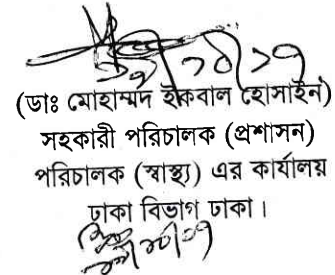 (ডাঃ মোহাম্মদ ইকবাল হোসাইন)
সহকারী পরিচালক (প্রশাসন)
পরিচালক (স্বাস্থ্য) এর কার্যালয়
ঢাকা বিভাগ ঢাকা।